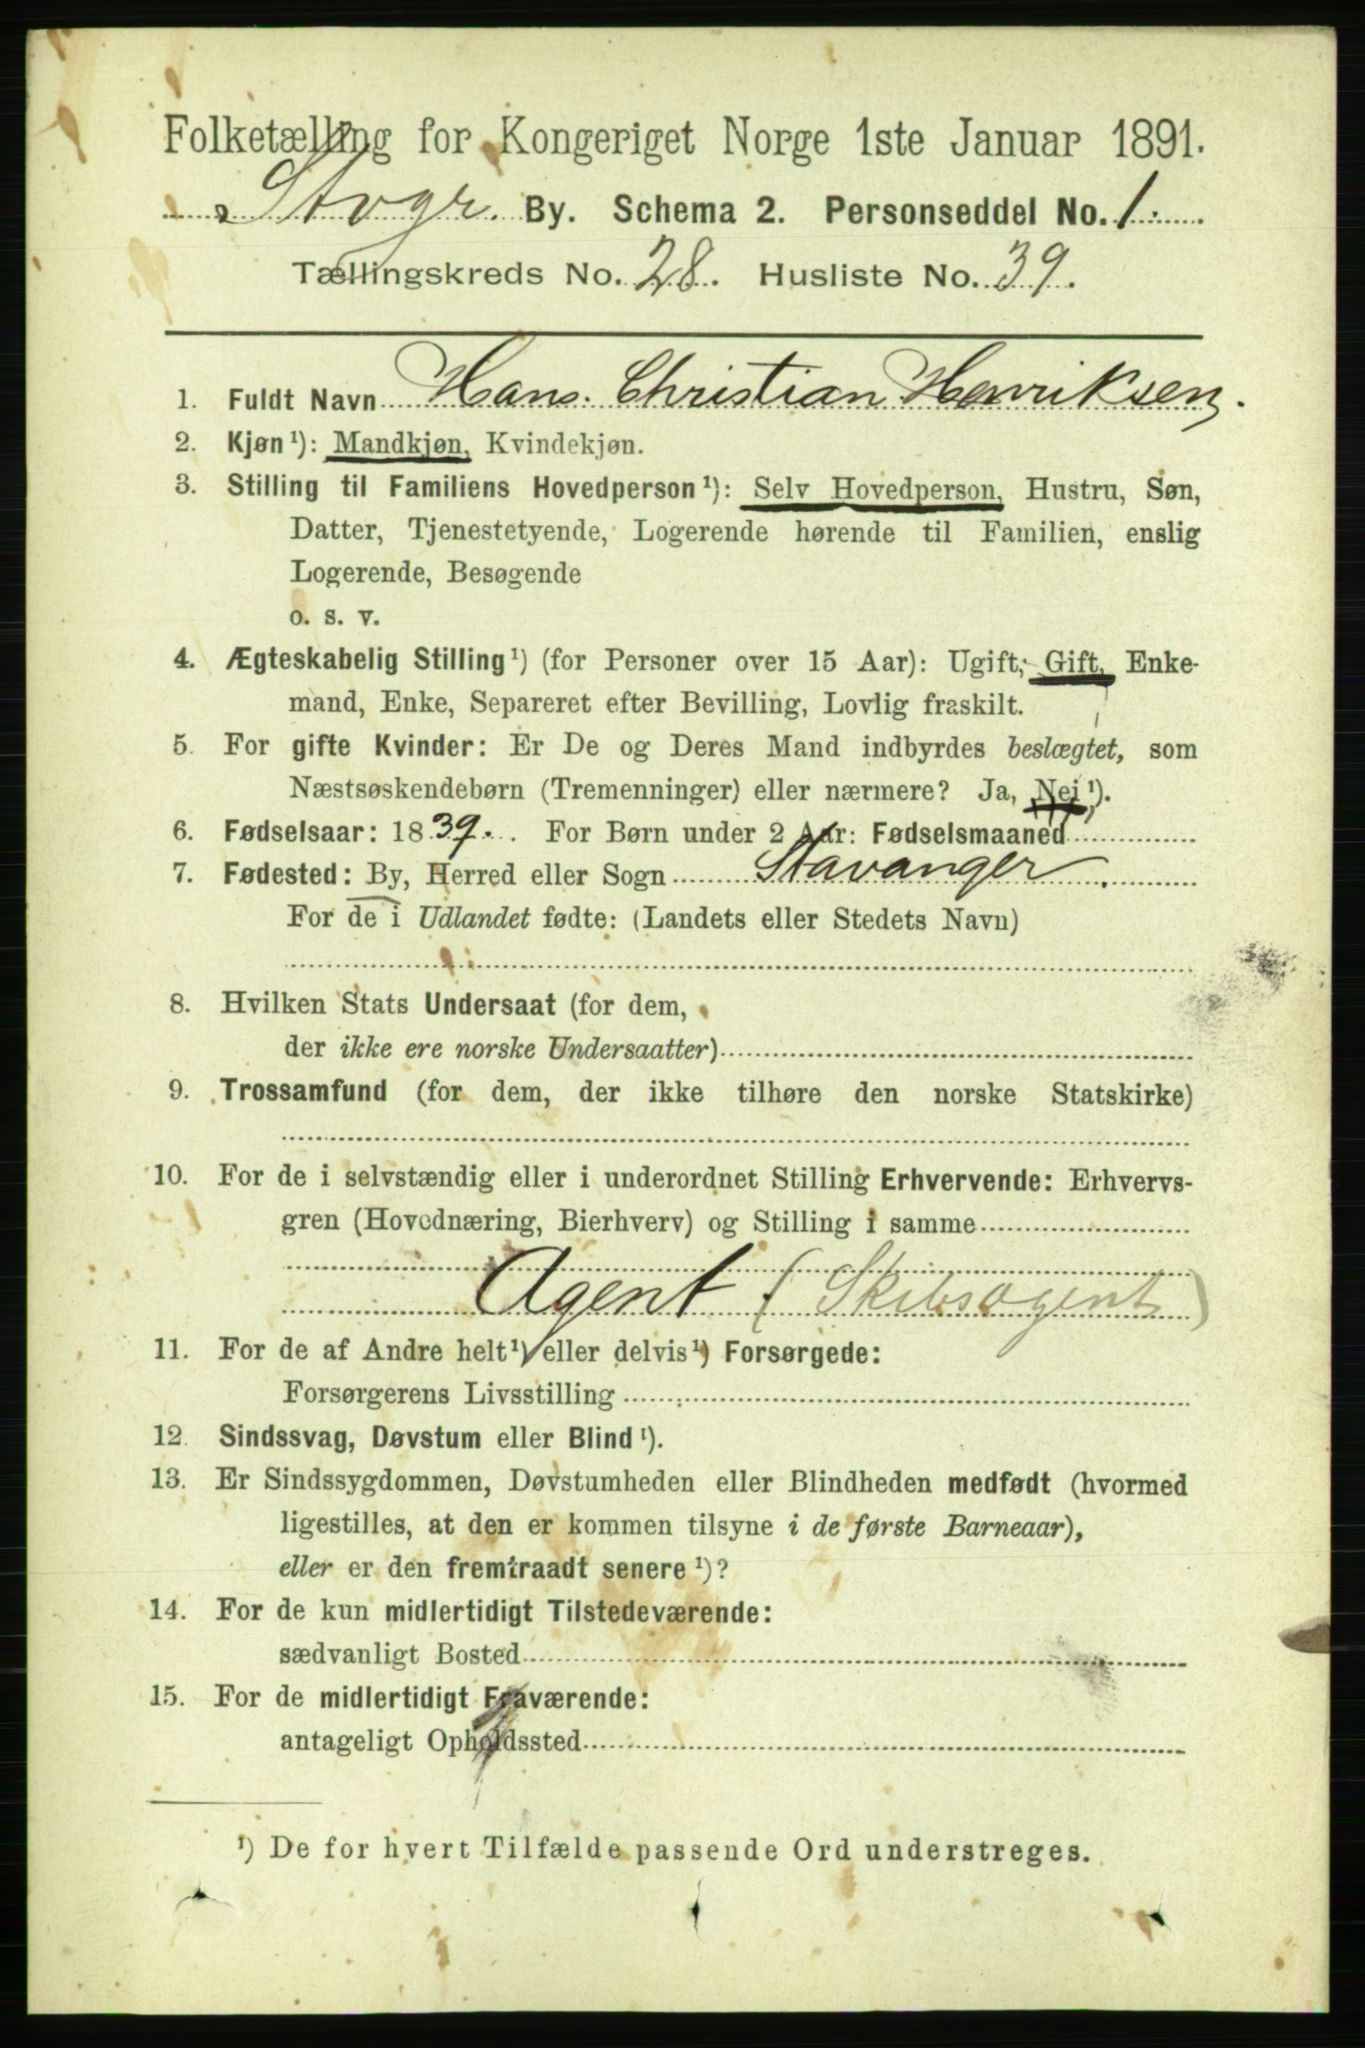 Folketælling for Kongeriget Norge 1ste Januar 1891.
Stvgr. By. Schema 2. Personseddel No. 1.
Tællingskreds No. 28. Husliste No. 39.
1. Fuldt Navn Hans Christian Henriksen.
2. Kjøn¹): Mandkjøn, Kvindekjøn.
3. Stilling til Familiens Hovedperson¹): Selv Hovedperson, Hustru, Søn,
Datter, Tjenestetyende, Logerende hørende til Familien, enslig
Logerende, Besøgende
o. s. v.
4. Ægteskabelig Stilling¹) (for Personer over 15 Aar): Ugift, Gift, Enke-
mand, Enke, Separeret efter Bevilling, Lovlig fraskilt.
5. For gifte Kvinder: Er De og Deres Mand indbyrdes beslægtet, som
Næstsøskendebørn (Tremenninger) eller nærmere? Ja, Nei¹).
6. Fødselsaar: 1839. For Børn under 2 Aar: Fødselsmaaned
7. Fødested: By, Herred eller Sogn Stavanger.
For de i Udlandet fødte: (Landets eller Stedets Navn)
8. Hvilken Stats Undersaat (for dem,
der ikke ere norske Undersaatter)
9. Trossamfund (for dem, der ikke tilhøre den norske Statskirke)
10. For de i selvstændig eller i underordnet Stilling Erhvervende: Erhvervs-
gren (Hovednæring, Bierhverv) og Stilling i samme
Agent (Skibsagent)
11. For de af Andre helt¹) eller delvis¹) Forsørgede:
Forsørgerens Livsstilling
12. Sindssvag, Døvstum eller Blind¹).
13. Er Sindssygdommen, Døvstumheden eller Blindheden medfødt (hvormed
ligestilles, at den er kommen tilsyne i de første Barneaar),
eller er den fremtraadt senere¹)?
14. For de kun midlertidigt Tilstedeværende:
sædvanligt Bosted
15. For de midlertidigt Fraværende:
antageligt Opholdssted
¹) De for hvert Tilfælde passende Ord understreges.